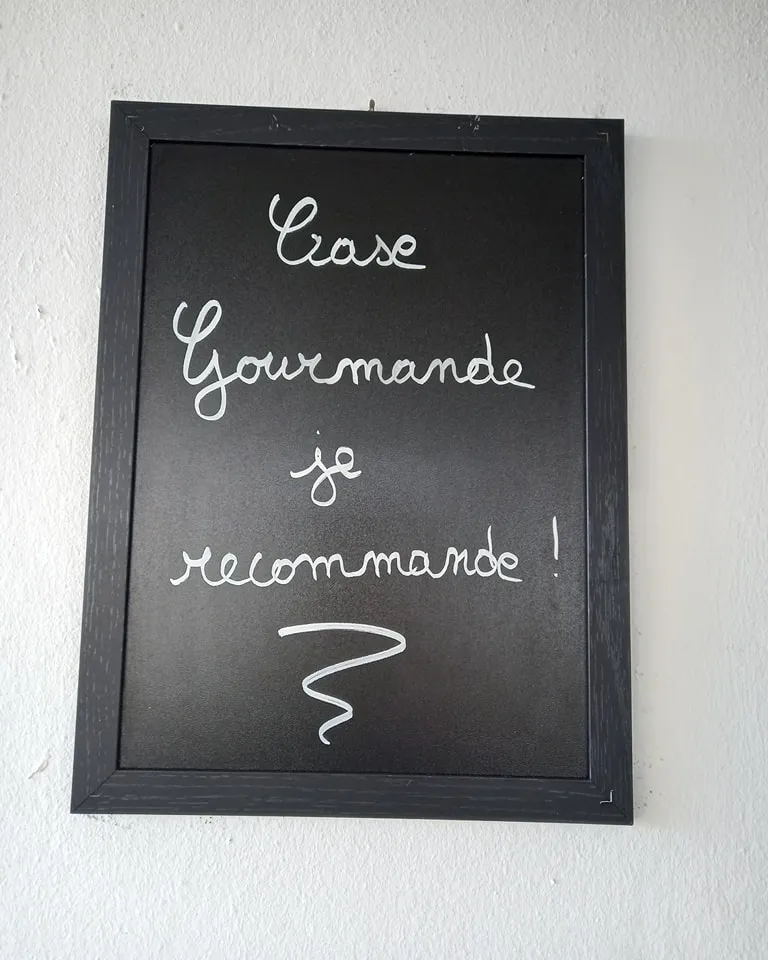 Case
Gourmande
je
recommande !